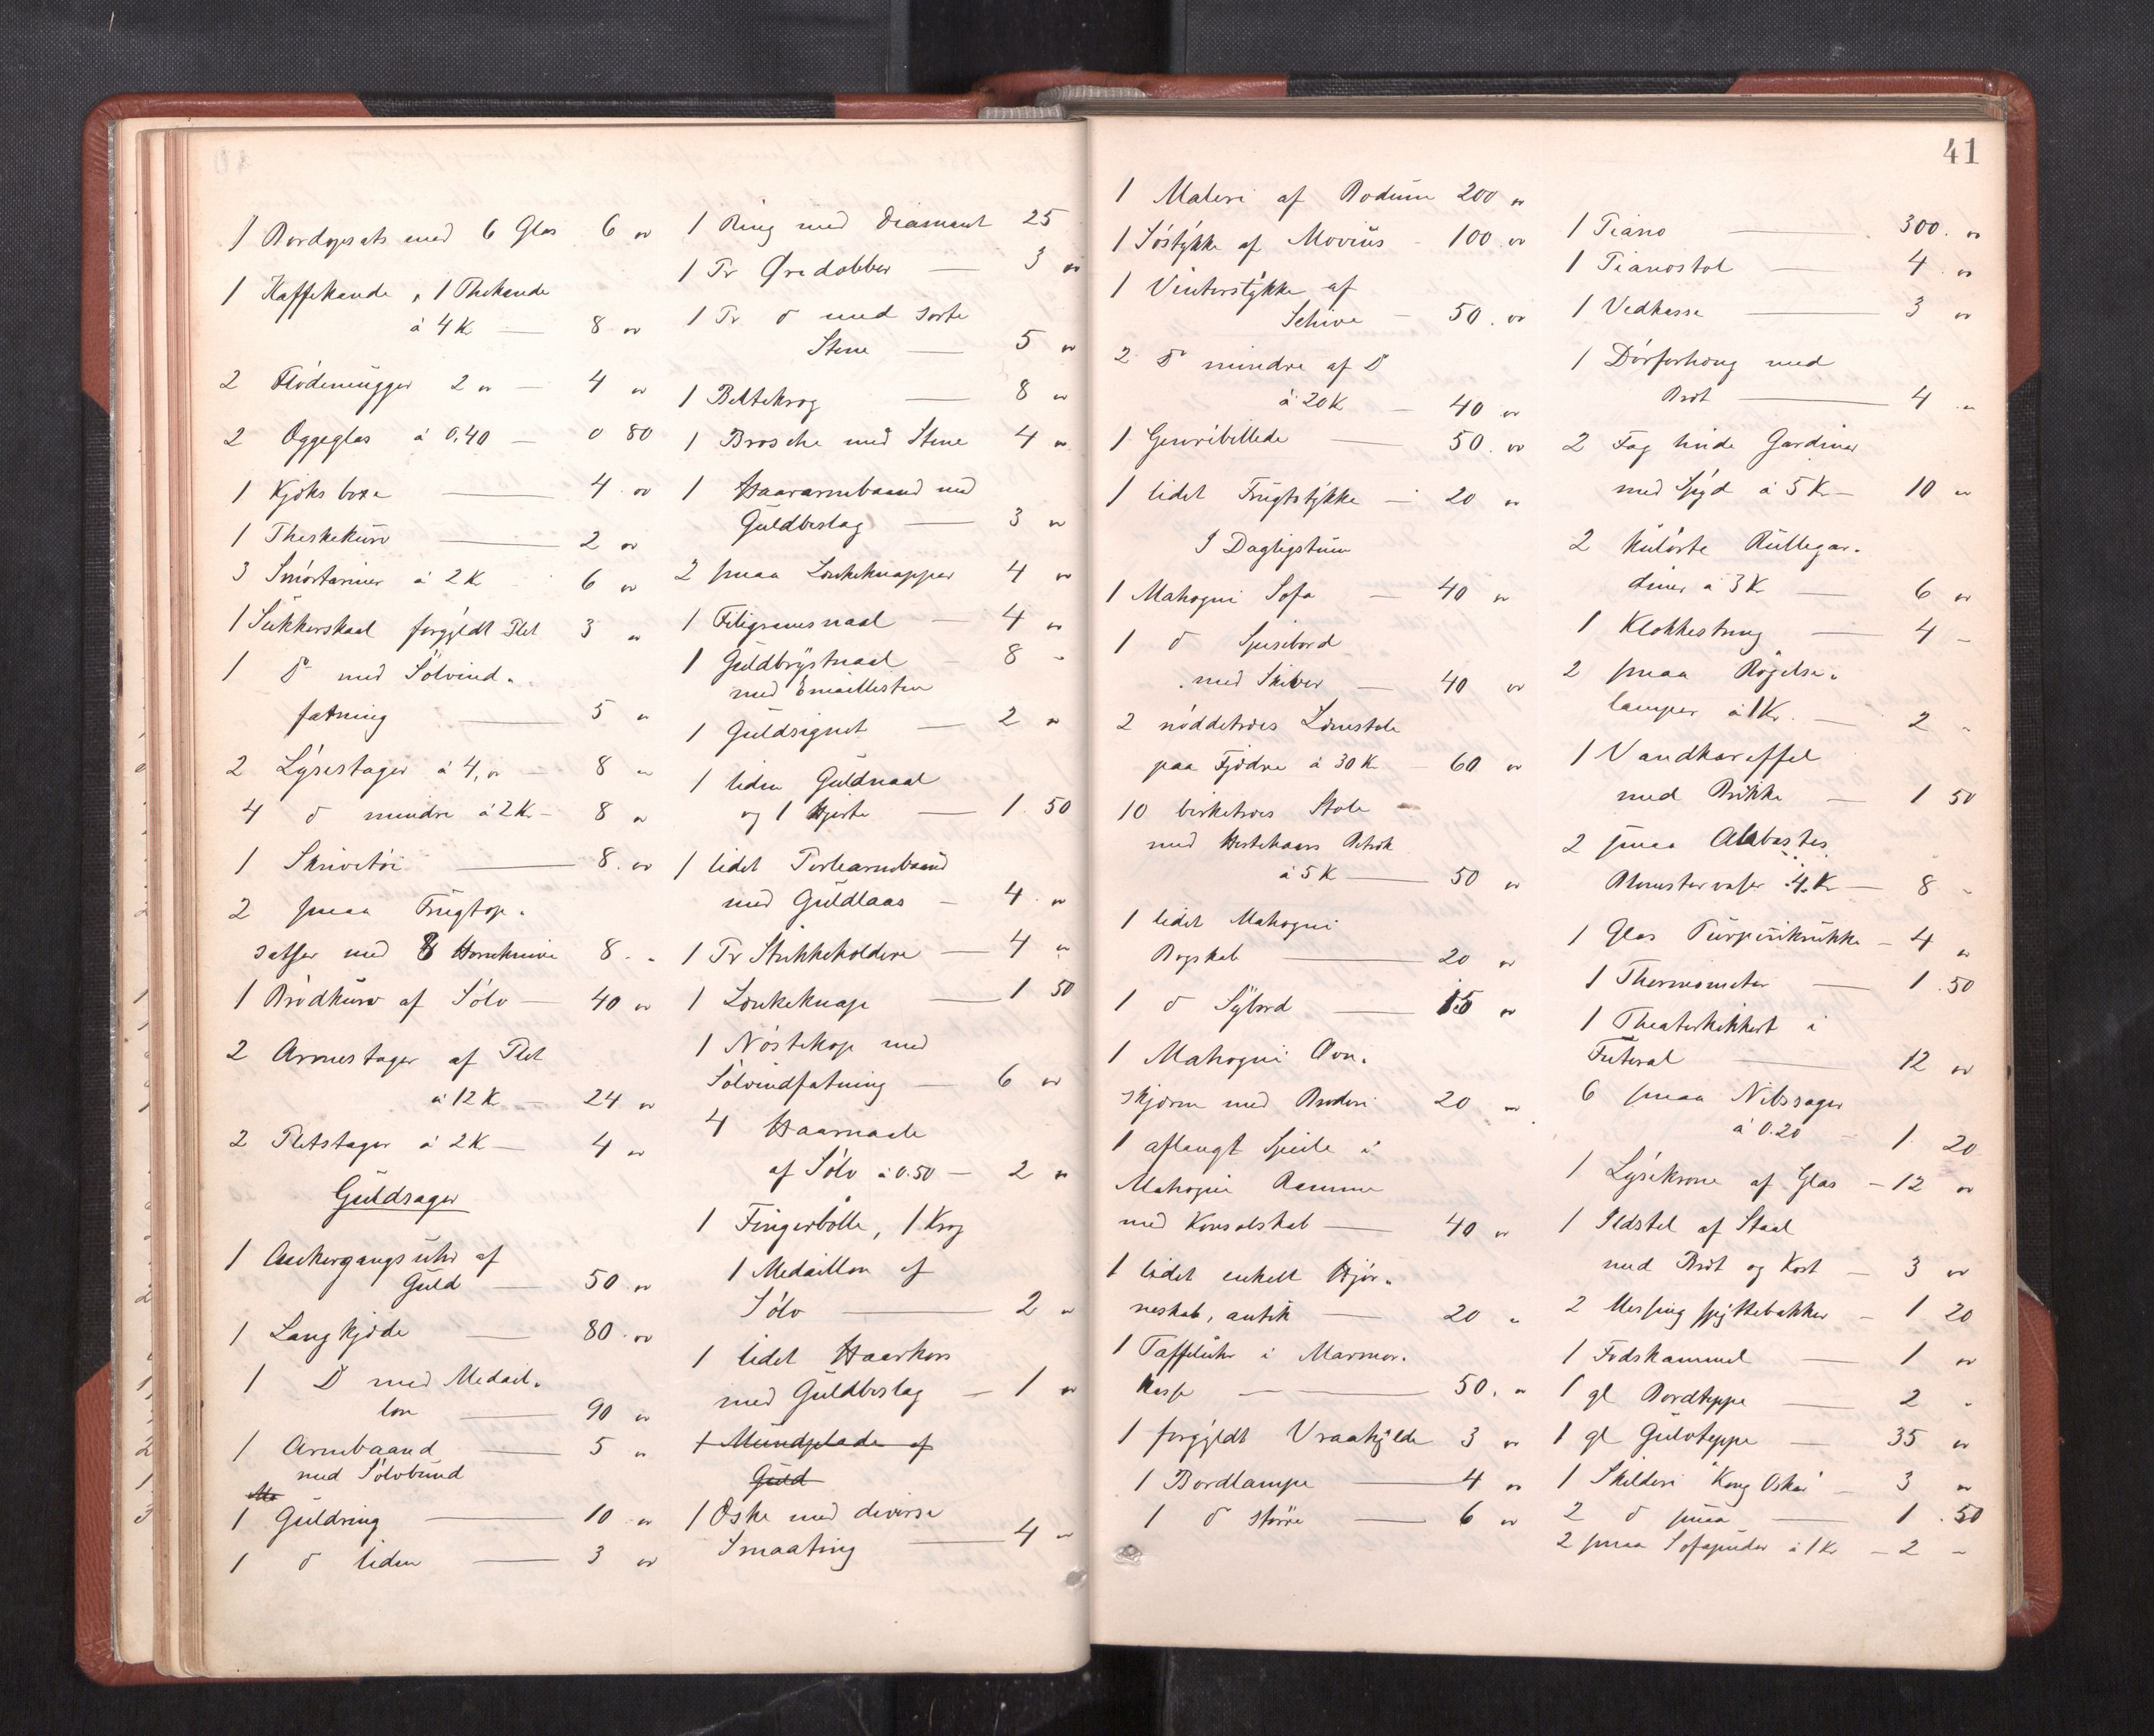 1 Bordopsats med 6 Glas 6 "
1 Kaffekande, 1 Thekande
à 4 K — 8 "
2 Flödemugger 2 " — 4 "
2 Æggeglas à 0,40 — 0 80
1 — 4 "
1 Theskekurv — 2 "
3 Smörtariner à 2 K 6 "
1 Sukkerskaal forgyldt Plet 3 "
1 D° med Sölvind-
fatning — 5 "
2 Lysestager à 4, " — 8 "
4 d mindre à 2 K — 8 "
1 Skrivetöi — 8 "
2 smaa Frugtop-
satser med 8 Hornknive 8 "
1 Brödkurv af Sölv — 40 "
2 Armestager af Plet
à 12 K — 24 "
2 Pletstager à 2 K — 4 "
Guldsager
1 Ankergangsuhr af
Guld — 50 "
1 Langkjæde — 80 "
1 D med Medail-
lon — 90 "
1 Armbaand — 5 "
med Sölvbund
1 Guldring — 10 "
1 d liden — 3 "
1 Ring med Diamant 25
1 Pr Øredobber — 3 "
1 Pr d med sorte
Stene — 5 "
1 Beltekrog — 8 "
1 Brosche med Stene 4 "
1 Haararmbaand med
Guldbeslag — 3 "
2 smaa Lænkeknapper 4 "
1 Filigransnaal — 4 "
1 Guldbrystnaal — 8 "
med Emaillesten
1 Guldsignet — 2 "
1 liden Guldnaal
og 1 Hjerte — 1 50
1 lidet Perlearmbaand
med Guldlaas — 4 "
1 Pr Stukkeholdere — 4 "
1 Lænkeknap — 1 50
1 Nöstekop med
Sölvindfatning — 6 "
4 Haarnaale
af Sölv à 0.50 — 2 "
1 Fingerbölle, 1 Krog
1 Medaillon af
Sölv — 2 "
1 lidet Haarkors
med Guldbeslag — 1 "
1 Mundplade af
Guld
1 Æske med diverse
Smaating — 4 "
41
1 Maleri af Bodum 200 "
1 Söstykke af Movius — 100 "
1 Vinterstykke af
Schive — 50 "
2 D° mindre af D
à 20 K — 40 "
1 Genrebillede — 50 "
1 lidet Frugtstykke — 20 "
I Dagligstuen
1 Mahogni Sofa — 40 "
1 d Spisebord
med Skiver — 40 "
2 nöddetræes Lænestole
paa Fjædre à 30 K — 60 "
10 birketræes Stole
med Hestehaars Betræk
à 5 K — 50 "
1 lidet Mahogni
Bogskab — 20 "
1 d Sybord — 15 "
1 Mahogni Ovn-
skjærm med Broderi 20 "
1 aflangt Speile i
Mahogni Ramme
med Konsolskab — 40 "
1 lidet enkelt Hjör-
neskab, antik — 20 "
1 Taffeluhr i Marmor-
kasse — 50 "
1 forgyldt Vraahylde 3 "
1 Bordlampe — 4 "
1 d större — 6 "
1 Piano — 300 "
1 Pianostol — 4 "
1 Vedkasse — 3 "
1 Dörforhæng med
Bræt — 4 "
2 Fag hvide Gardiner
med Spyd à 5 Kr — 10 "
2 kulörte Rullegar-
diner à 3 K — 6 "
1 Klokkestræng — 4 "
2 smaa Rögelse-
lamper à 1 Kr. — 2 "
1 Vandkaraffel
med Brikke — 1 50
2 smaa Alabastes
Blomstervaser 4 K — 8 "
1 Glas Purpurkrukke — 4 "
1 Thermometer — 1 50
1 Theaterkikkert i
Futeral — 12 "
6 smaa Nibssager
à 0.20 — 1 20
1 Lysekrone af Glas — 12 "
1 Ildstel af Staal
med Bræt og Kost — 3 "
2 Messing spyttebakker — 1 20
1 Fodskammel — 1 "
1 gl Bordteppe — 2 "
1 gl Gulvteppe — 35 "
1 Skilderi "Kong Oskar" — 3 "
2 d smaa — 1 50
2 smaa Sofapuder à 1 Kr — 2 "